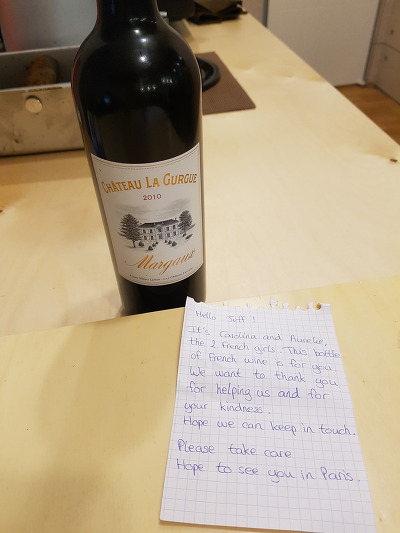 CHÂTEAU LA GURGUE
2010
Margaux
Hello Jeff !
It's Carolina and Aurelie,
the 2 French girls. This bottle
of French wine is for you
We want to thank you
for helping us and for
your kindness.
Hope we can keep in touch.
Please take care
Hope to see you in Paris.